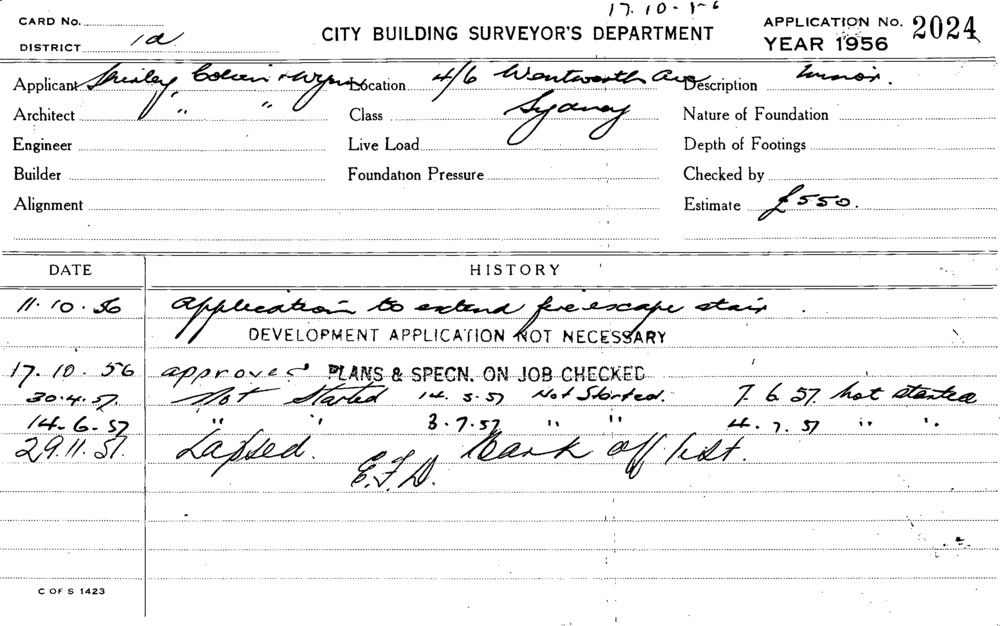 17.10.56
CARD No. CITY BUILDING SURVEYOR'S DEPARTMENT APPLICATION No. 2024
DISTRICT 1a YEAR 1956
Applicant Shirley Colvin & Wynn Location 4/6 Wentworth Ave Description minor.
Architect " " Class Sydney Nature of Foundation
Engineer Live Load Depth of Footings
Builder Foundation Pressure Checked by
Alignment Estimate £550.
DATE HISTORY
11.10.56 application to extend fire escape stair.
DEVELOPMENT APPLICATION NOT NECESSARY
17.10.56 approved PLANS & SPECN. ON JOB CHECKED
30.4.57. Not Started 14.5.57 Not Started. 7.6.57. not started
14.6.57 " " 3.7.57 " " 4.7.57 " ".
29.11.57. Lapsed. Mark off list.
E.F.D.
C OF S 1423